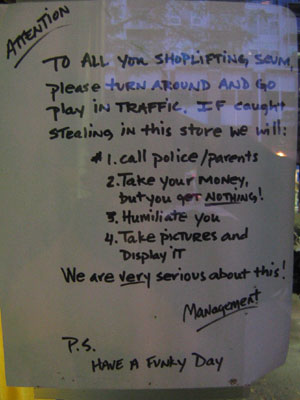 ATTENTION
TO ALL YOU SHOPLIFTING SCUM,
please TURN AROUND AND GO
play IN TRAFFIC. IF caught
stealing in this store we will:
#1. call police/parents
2. Take your MONEY,
but you get NOTHING!
3. Humiliate you
4. Take pictures and
Display IT
We are very serious about this!
Management
P.S.
HAVE A FUNKY DAY